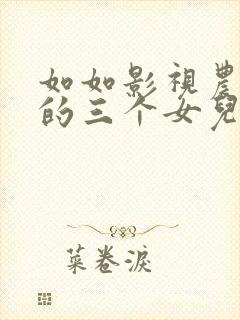 如如影視農
的三个女兒
菜卷淚